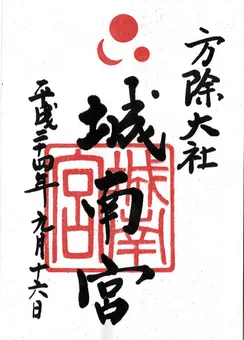 方除大社
城南宮
城南宮
平成二十四年 九月十六日